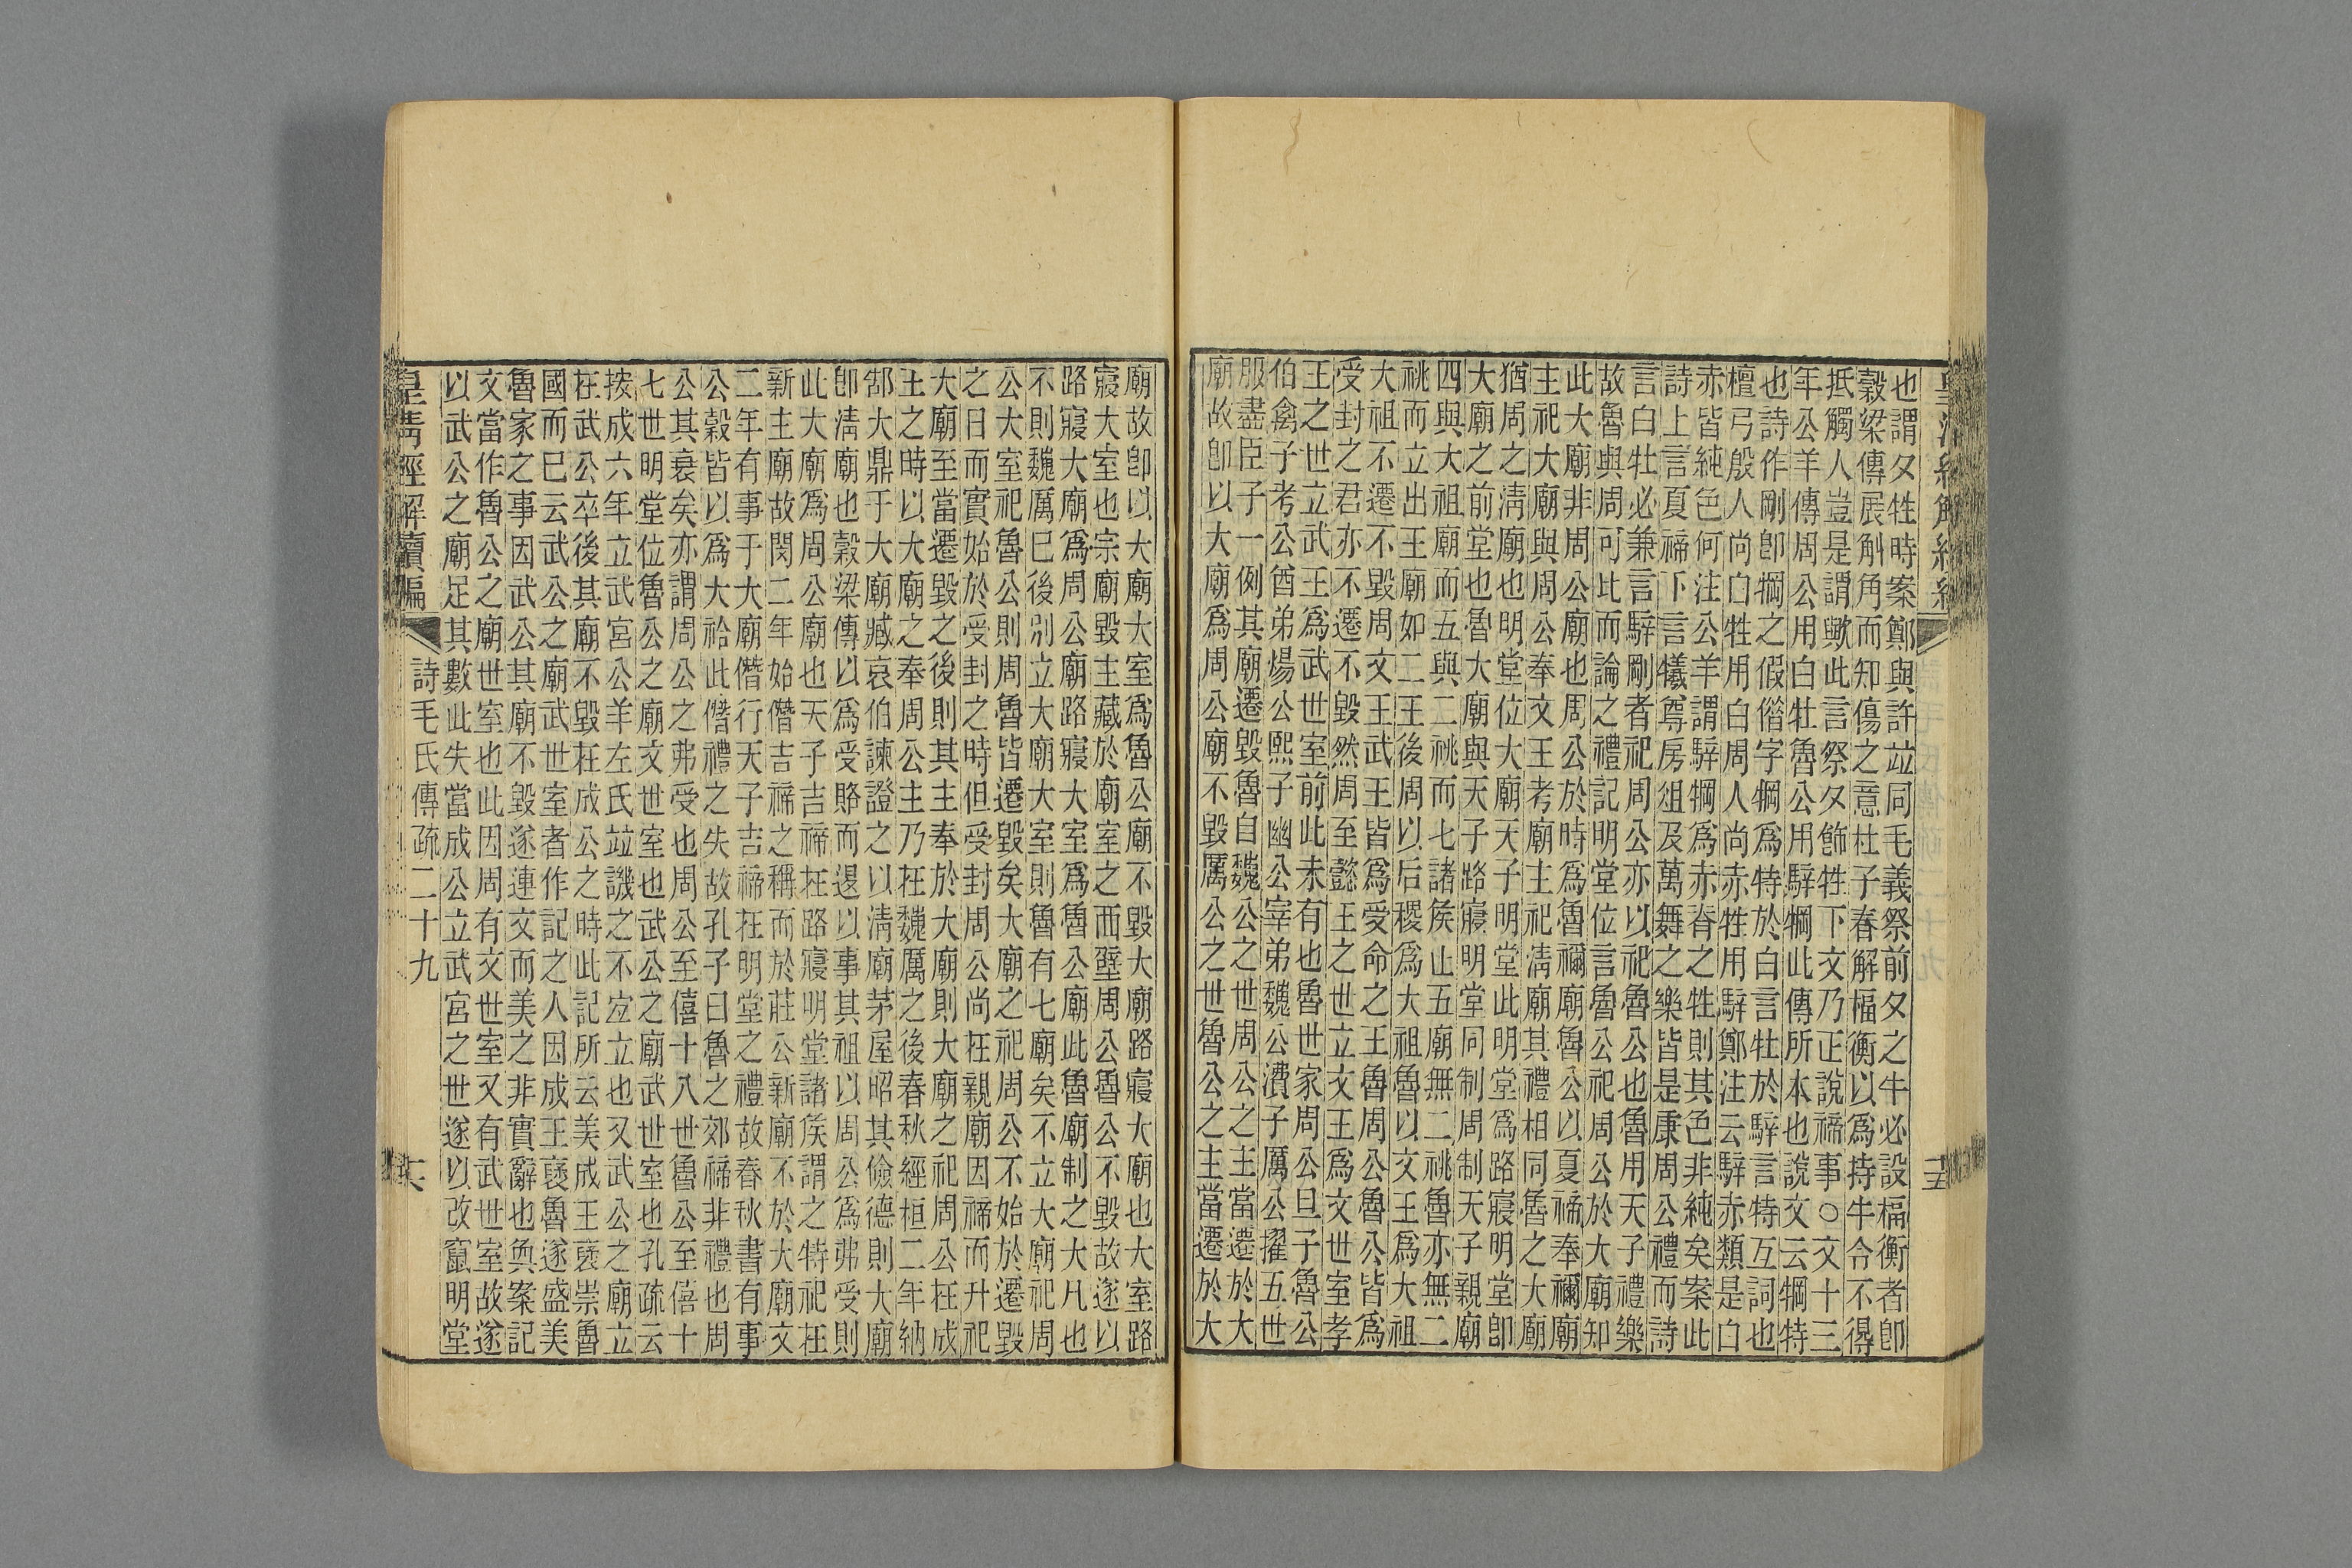 也謂夕牲時案鄭與許竝同毛義祭前夕之牛必設楅衡者卽
穀梁傳展斛角而知傷之意杜子春解楅衡以爲持牛令不得
抵觸人豈是謂歟此言祭夕飾牲下文乃正說禘事○文十三
年公羊傳周公用白牡魯公用騂犅此傳所本也說文云犅特
也詩作剛卽犅之假偺字犅爲特於白言牡於騂言特互詞也
檀弓殷人尚白牲用白周人尚赤牲用騂鄭注云騂赤類是白
赤皆純色何注公羊謂騂犅爲赤脊之牲則其色非純矣案此
詩上言夏禘下言犧尊房俎及萬舞之樂皆是康周公禮而詩
言白牡必兼言騂剛者祀周公亦以祀魯公也魯用天子禮樂
故魯與周可此而論之禮記明堂位言魯公祀周公於大廟知
此大廟非周公廟也周公於時爲魯禰廟魯公以夏禘奉禰廟
主祀大廟與周公奉文王考廟主祀淸廟其禮相同魯之大廟
猶周之淸廟也明堂位大廟天子明堂此明堂爲路寢明堂卽
大廟之前堂也魯大廟與天子路寢明堂同制周制天子親廟
四與大祖廟而五與二祧而七諸矦止五廟無二祧魯亦無二
祧而立出王廟如二王後周以后稷爲大祖魯以文王爲大祖
大祖不遷不毀周文王武王皆爲受命之王魯周公魯公皆爲
受封之君亦不遷不毀然周至懿王之世立文王爲文世室孝
王之世立武王爲武世室前此未有也魯世家周公旦子魯公
伯禽子考公酋弟煬公熙子幽公宰弟魏公㵒子厲公擢五世
服盡臣子一例其廟遷毀魯自魏公之世周公之主當遷於大
廟故卽以大廟爲周公廟不毀厲公之世魯公之主當遷於大
廟故卽以大廟大室爲魯公廟不毀大廟路寢大廟也大室路
寢大室也宗廟毀主藏於廟室之西壁周公魯公不毀故遂以
路寢大廟爲周公廟路寢大室爲魯公廟此魯廟制之大凡也
不則魏厲巳後別立大廟大室則魯有七廟矣不立大廟祀周
公大室祀魯公則周魯皆遷毀矣大廟之祀周公不始於遷毀
之日而實始於受封之時但受封周公尚在親廟因禘而升祀
大廟至當遷毀之後則其主奉於大廟則大廟之祀周公在成
王之時以大廟之奉周公主乃在魏厲之後春秋經桓二年納
郜大鼎于大廟臧哀伯諫證之以淸廟茅屋昭其儉德則大廟
卽淸廟也穀梁傳以爲受賂而退以事其祖以周公爲弗受則
此大廟爲周公廟也天子吉禘在路寢明堂諸矦謂之特祀在
新主廟故閔二年始僭吉禘之稱而於莊公新廟不於大廟文
二年有事于大廟僭行天子吉禘在明堂之禮故春秋書有事
公穀皆以爲大祫此僭禮之失故孔子曰魯之郊禘非禮也周
公其衰矣亦謂周公之弗受也周公至僖十八世魯公至僖十
七世明堂位魯公之廟文世室也武公之廟武世室也孔疏云
按成六年立武宮公羊左氏竝譏之不宐立也又武公之廟立
在武公卒後其廟不毀在成公之時此記所云美成王襃崇魯
國而已云武公之廟武世室者作記之人因成王襃魯遂盛美
魯家之事因武公其廟不毀遂連文而美之非實辭也奐案記
文當作魯公之廟世室也此因周有文世室又有武世室故遂
以武公之廟足其數此失當成公立武宮之世遂以改竄明堂
皇淸經解續編
詩毛氏傳疏二十九